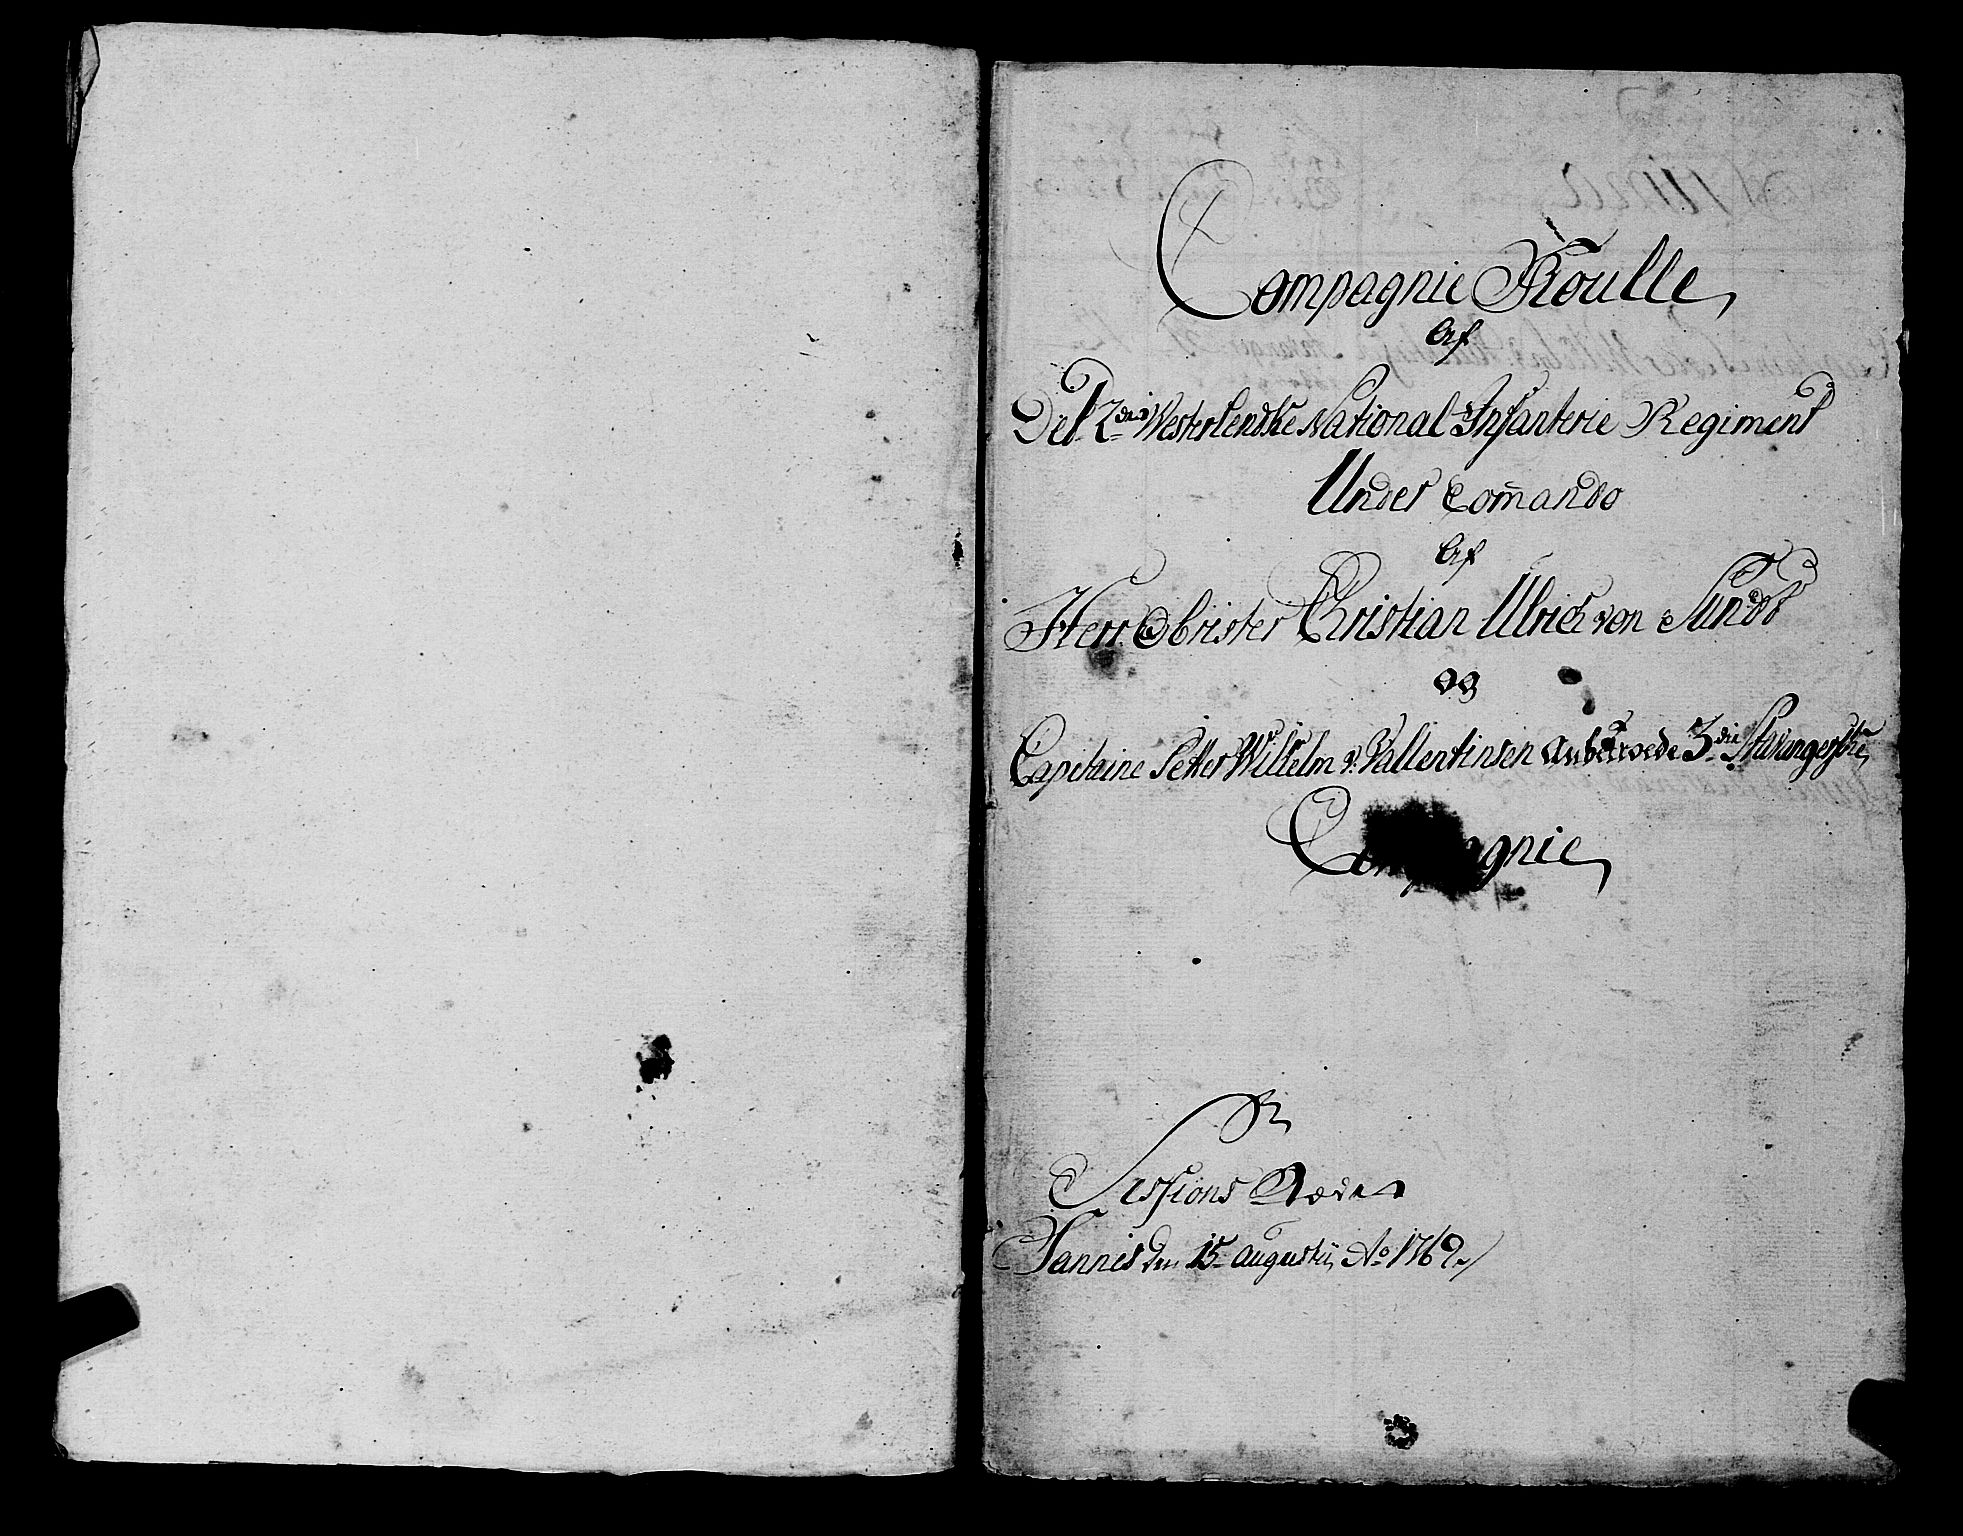 Compagnie Roulle,
Af
Det 2den Westerlendske National Infanterie Regiment
Under Comando
Af
Herr Obrister Christian Ulrich von
og
Capitaine Petter Willhelm v. Vallentinsen anbetroede 3die Stavangerske
Compagnie,
Sessions
den 15 Augustii Ao 1769